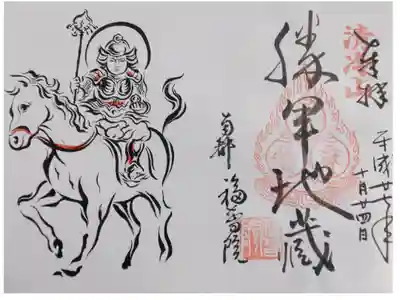 奉拝
平成廿七年
十月廿四日
勝軍地蔵
南都 福智院